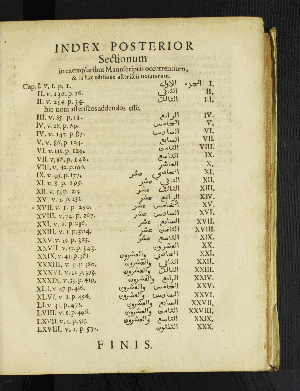 INDEX POSTERIOR
Sectionum
in exemplaribus Manuscriptis occurrentium,
& in hac editione asteriscis notatarum.
Cap. I. v. 1. p. 1. الجزء الاول I.
II. v. 130. p. 16. الثاني II.
II. v. 254. p. 34. الثالث III.
hic nota asteriscus addendus esset.
III. v. 85. p. 51. الرابع IV.
IV. v. p. 69. الخامس V.
IV. v. 147. p. 87. السادس VI.
V. v. 86. p. 104. السابع VII.
VI. v. p. 124. الثامن VIII.
VII. v. p. 142. التاسع IX.
VIII. v. 42. p. 160. العاشر X.
IX. v. 95. p. 177. الحادي عشر XI.
XI. v. 8. p. 195. الثاني عشر XII.
XII. v. 53. p. الثالث عشر XIII.
XV. v. 1. p. الرابع عشر XIV.
XVII. v. 1. p. 250. الخامس عشر XV.
XVIII. v. 74. p. 267. السادس عشر XVI.
XXI. v. 1. p. السابع عشر XVII.
XXIII. v. 1. p. 304. الثامن عشر XVIII.
XXV. v. p. 323. التاسع عشر XIX.
XXVII. v. p. 343. العشرون XX.
XXIX. v. 45. p. 361. الحادي والعشرون XXI.
XXXIII. v. p. 380. الثاني والعشرون XXII.
XXXVI. v. p. 398. الثالث والعشرون XXIII.
XXXIX. v. p. 419. الرابع والعشرون XXIV.
XLI. v. 47. p. 436. الخامس والعشرون XXV.
XLVI. v. 1. p. 456. السادس والعشرون XXVI.
LI. v. p. 476. السابع والعشرون XXVII.
LVIII. v. 1. p. 496. الثامن والعشرون XXVIII.
LXVII. v. 1. p. التاسع والعشرون XXIX.
LXXVIII. v. 1. p. الثلثون XXX.
FINIS.